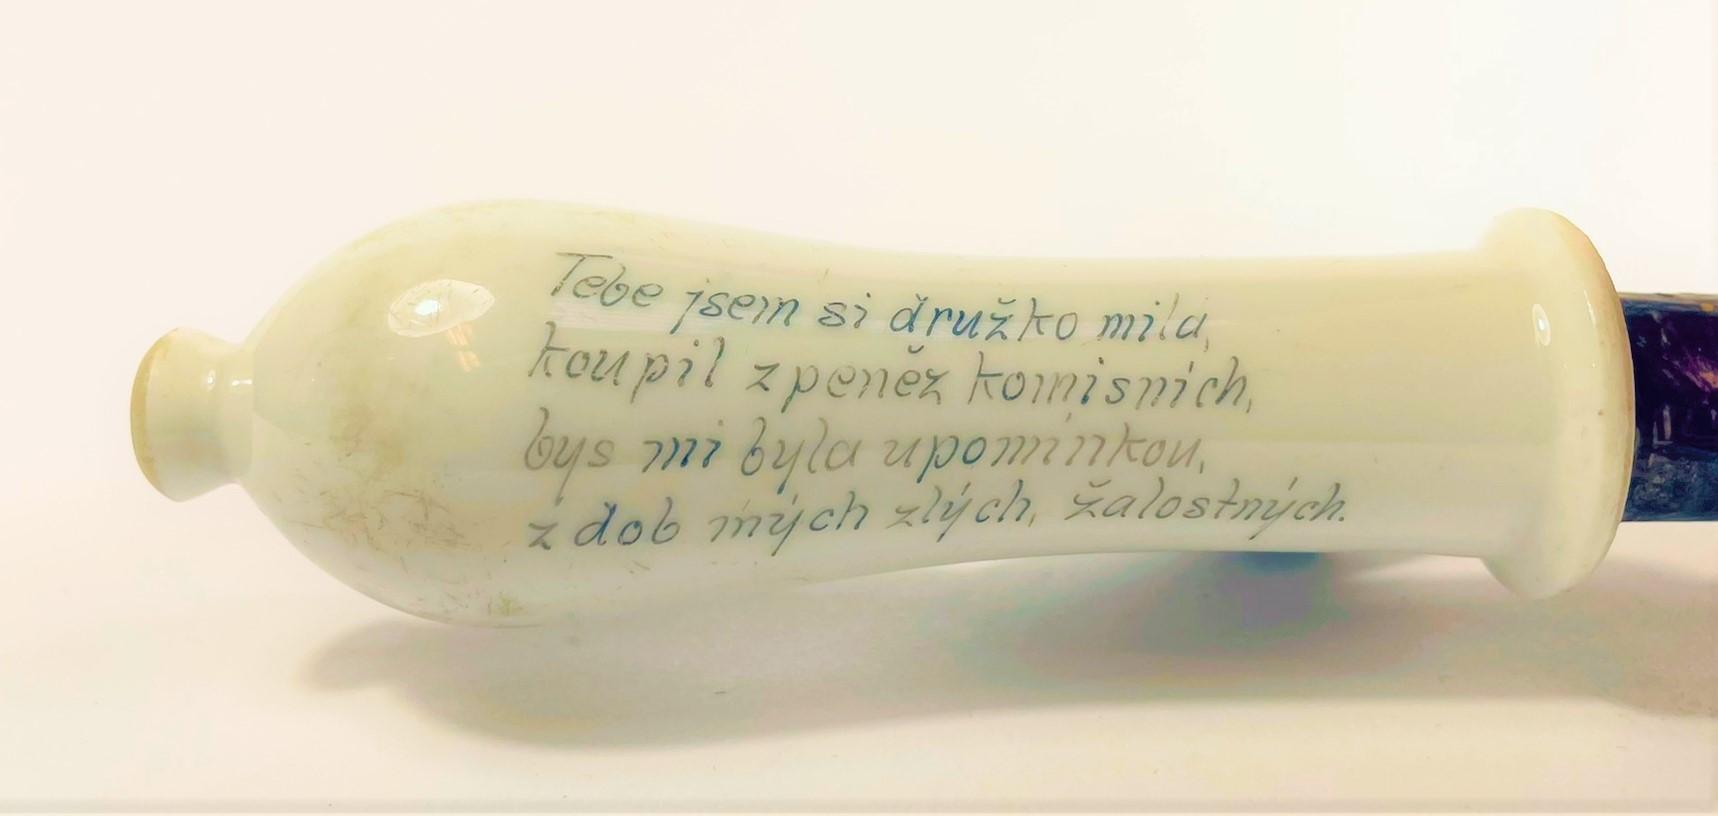 Tebe jsem si družko mila,
koupil z peněz komisních,
bys mi byla upomínkou,
z dob mých zlých, žalostných.